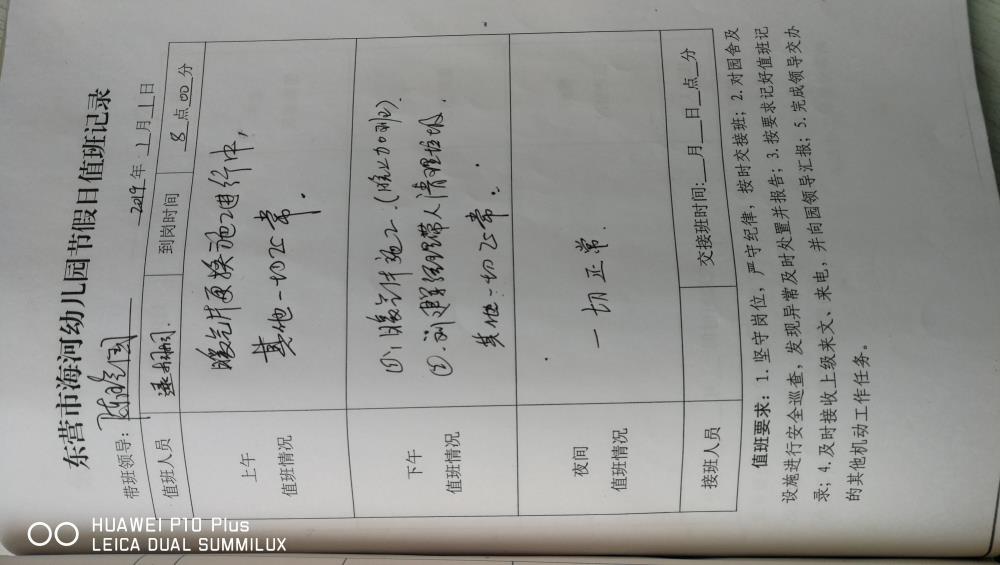 东营市海河幼儿园节假日值班记录
带班领导: 2019年 1月1日
值班人员 到岗时间 8点00分
上午
值班情况
暖气片更换施工进行中,
其他一切正常.
下午
值班情况
①:暖气片施工.(晚上加班).
②.刘建军经理带人清理垃圾
其他一切正常.
夜间
值班情况
一切正常.
接班人员 交接班时间: 月 日 点 分
值班要求:1.坚守岗位,严守纪律,按时交接班;2.对园舍及
设施进行安全巡查,发现异常及时处置并报告;3.按要求记好值班记
录;4.及时接收上级来文、来电,并向园领导汇报;5.完成领导交办
的其他机动工作任务。
HUAWEI P10 Plus
LEICA DUAL SUMMILUX